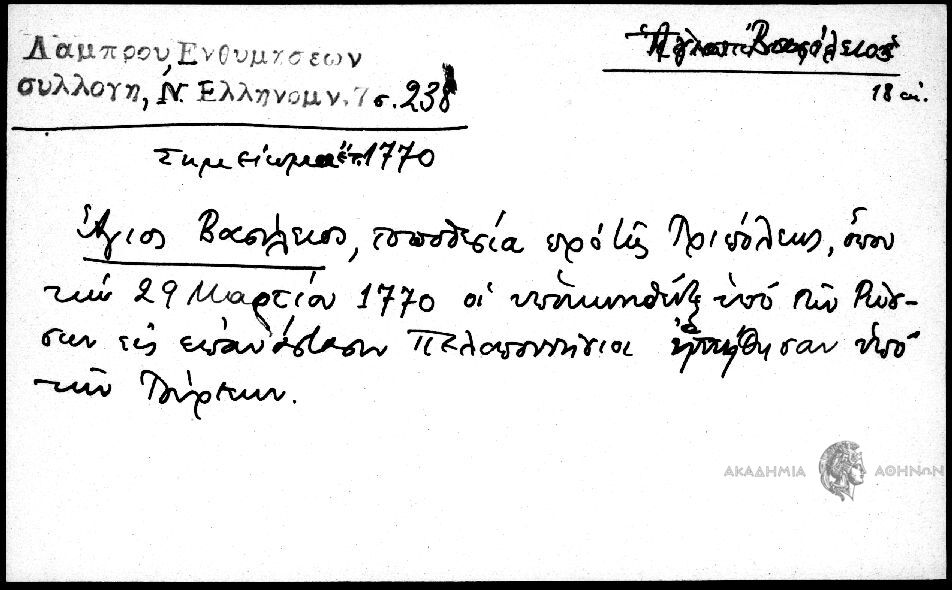 Λάμπρου, Ενθυμήσεων
συλλογή, Ν. Ελληνομν. 7 σ. 238
Ἅγιος Βασίλειος
18 αἰ.
Σημείωμα ἔτ. 1770
Ἅγιος Βασίλειος, τοποθεσία πρὸ τῆς Τριπόλεως, ὅπου
τὴν 29 Μαρτίου 1770 οἱ ὑποκινηθέντες ὑπὸ τῶν Ρώσ-
σων εἰς ἐπανάστασιν Πελοποννήσιοι ἡττήθησαν ὑπὸ
τῶν Τούρκων.
ΑΚΑΔΗΜΙΑ ΑΘΗΝΩΝ